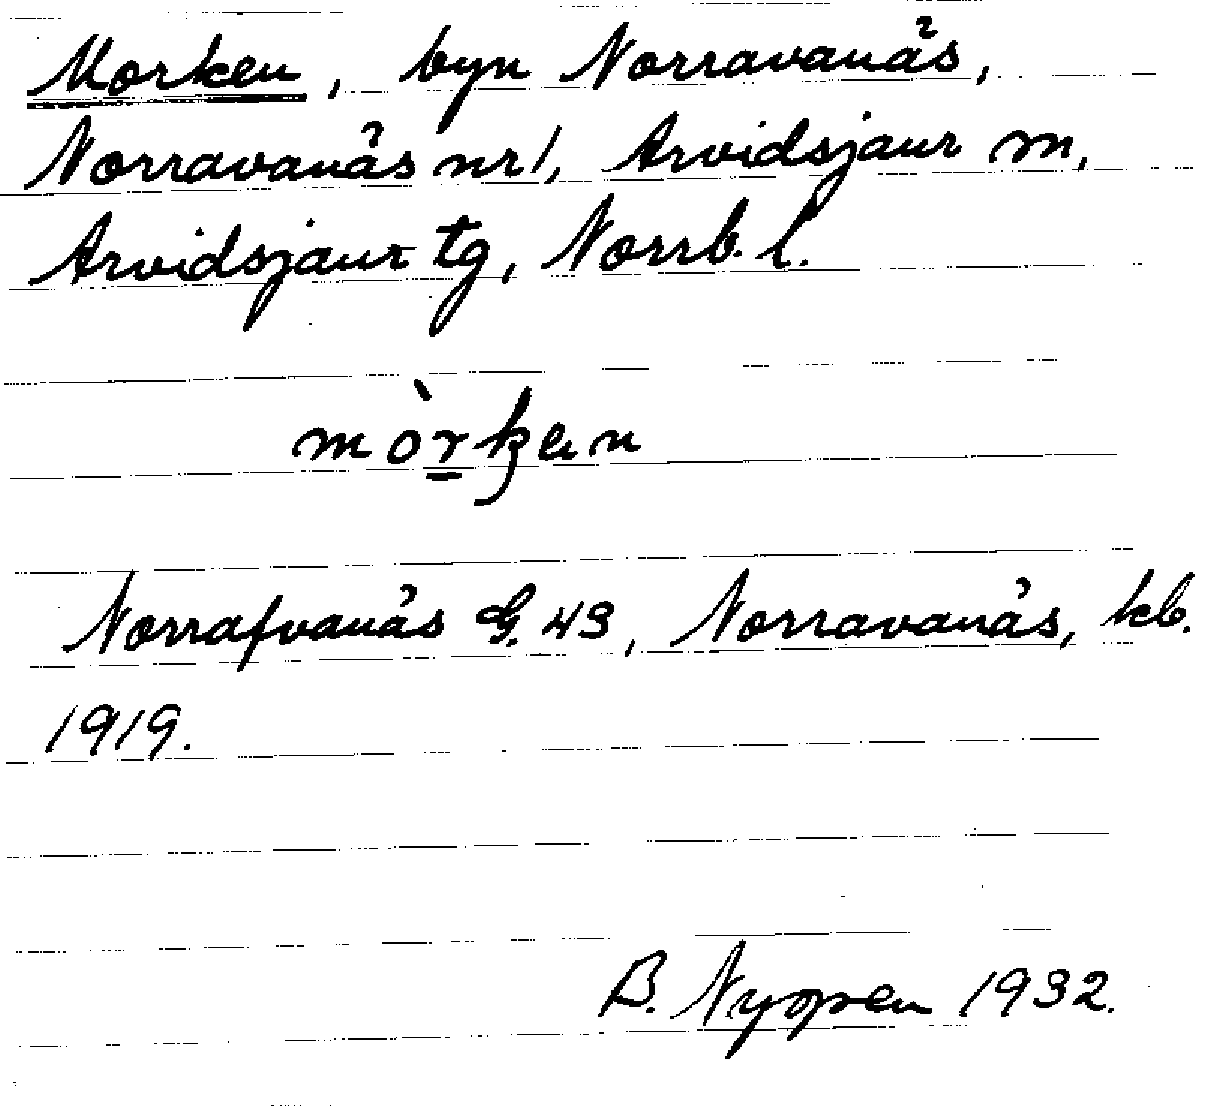 Morken, byn Norravanäs,
Norravanäs nr 1, Arvidsjaur m,
Arvidsjaur tg, Norrb. l.
Norrafvanås G. 43, Norravanås, kb.
1919.
B. Nyopen 1932.